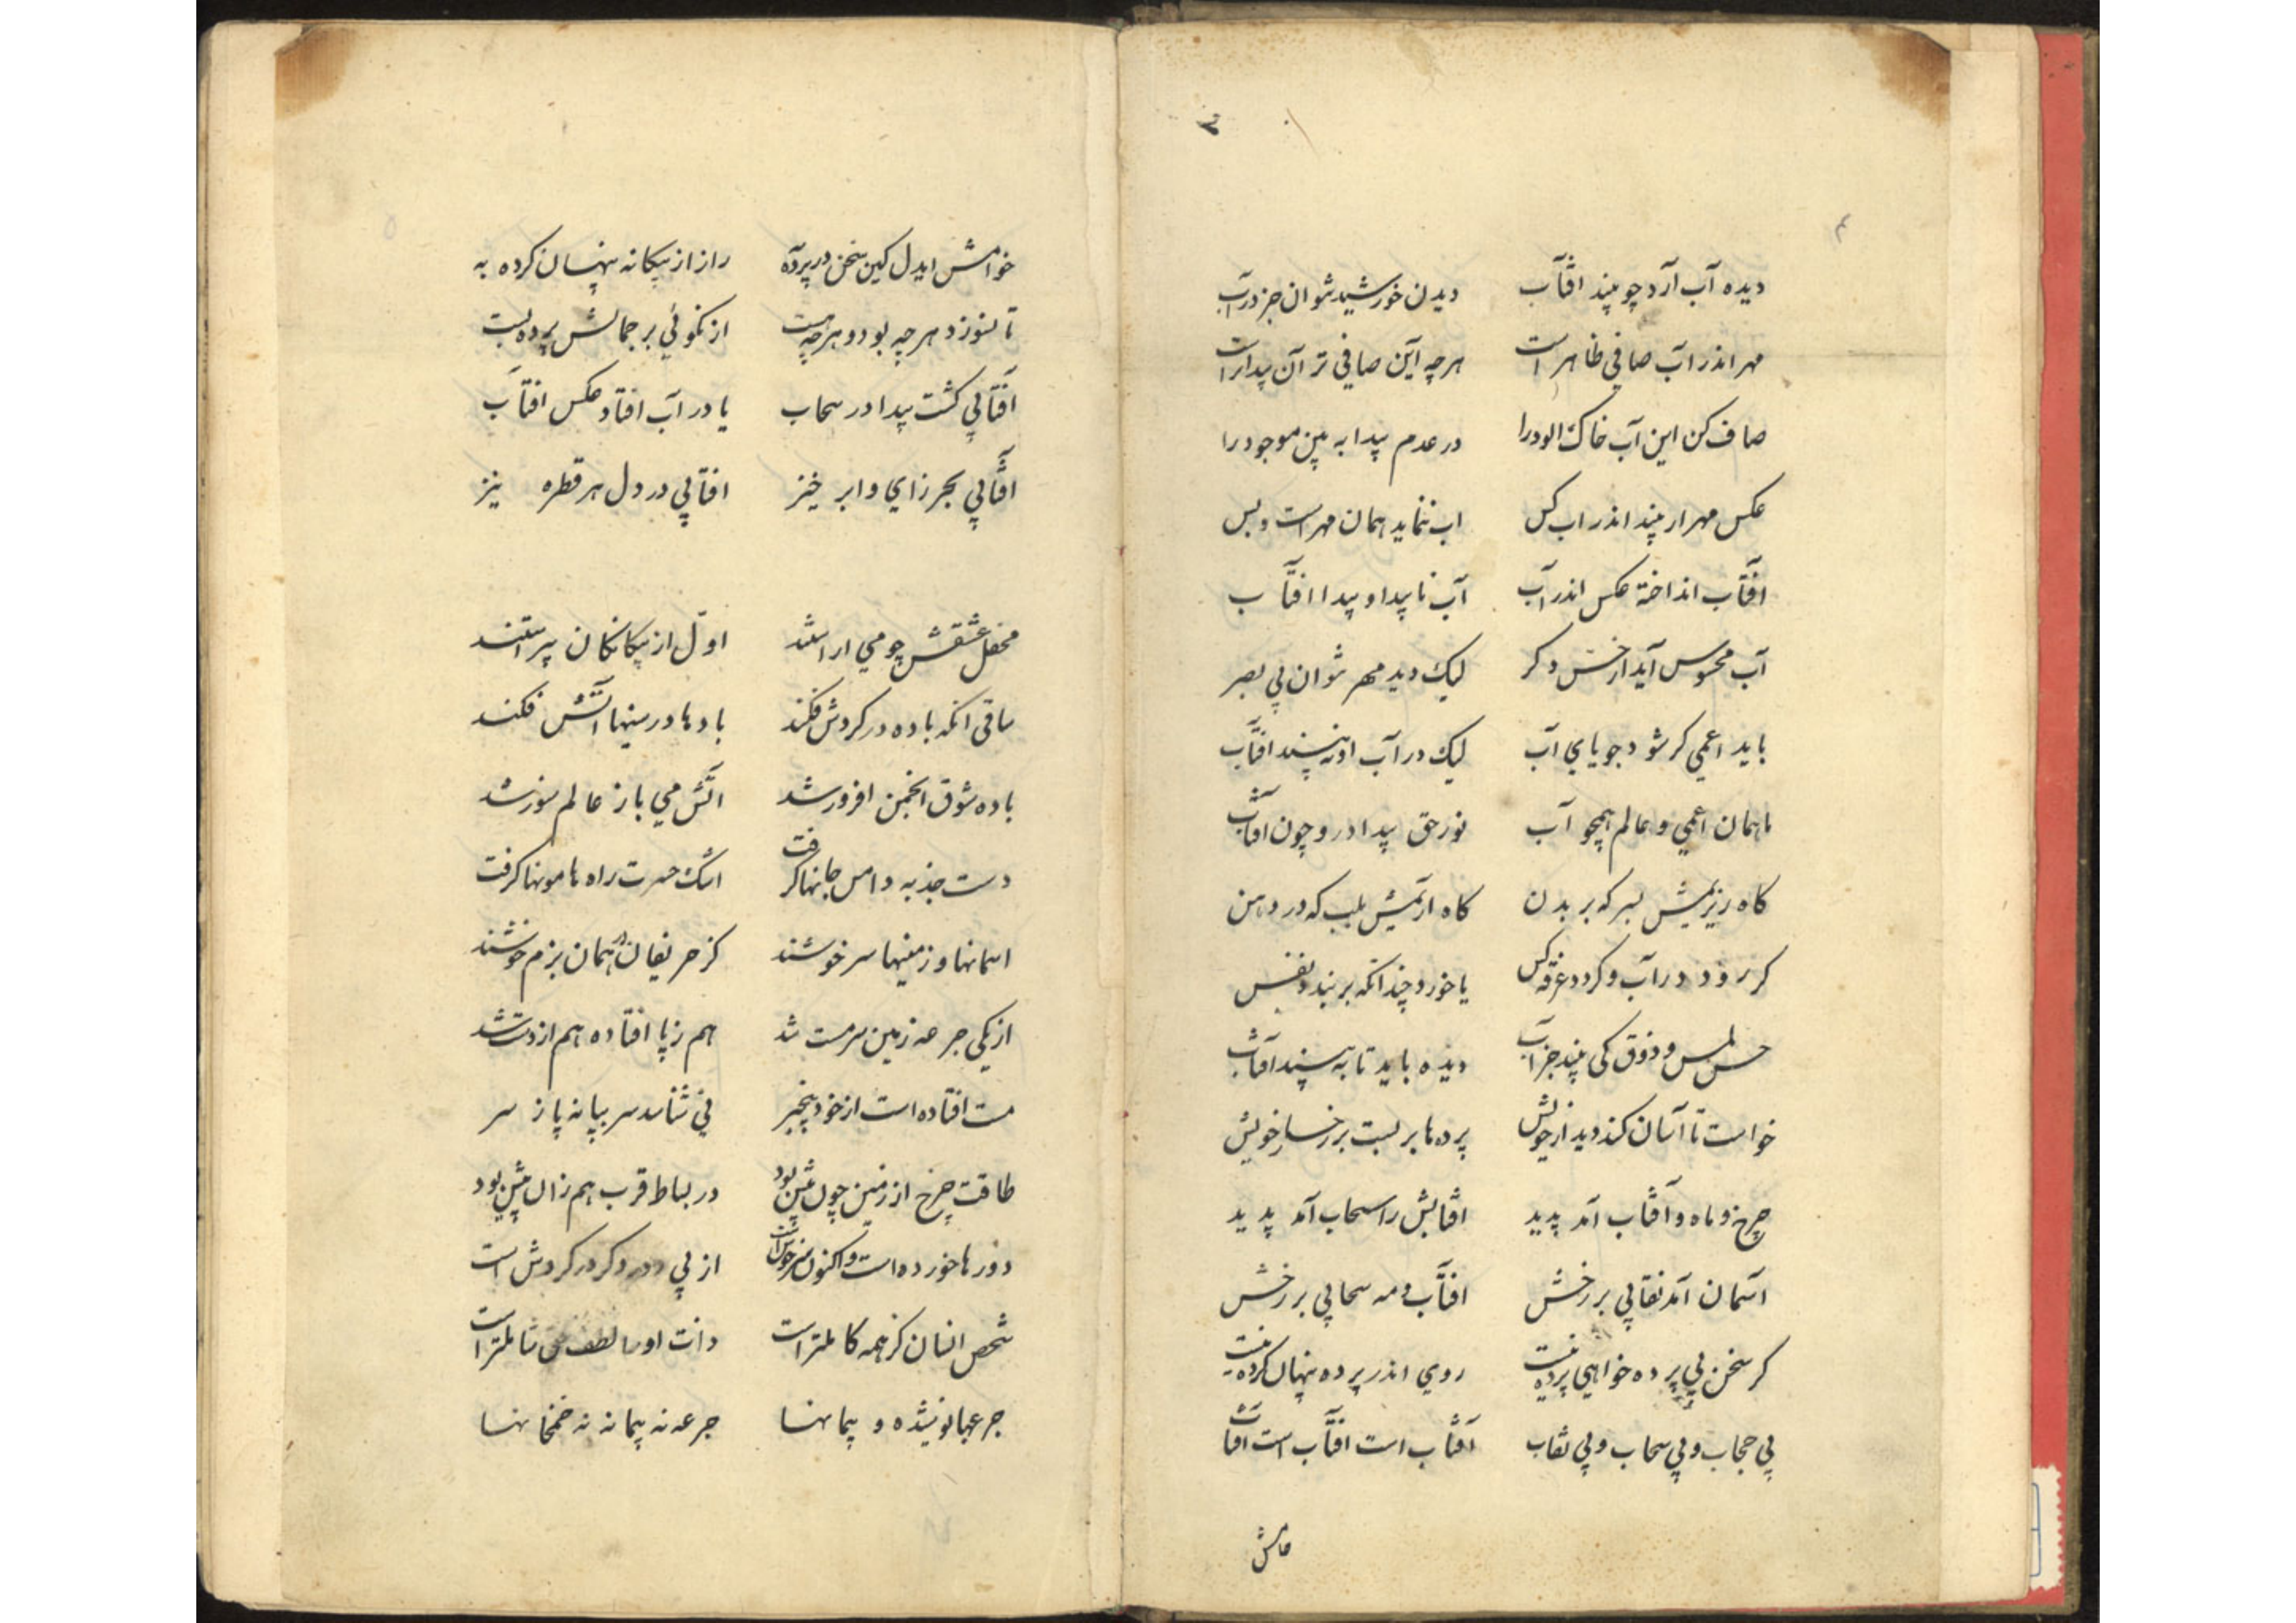 ۳
۴
دیده آب آرد چو بیند افتاب دیدن خورشید نتوان جز در آب
مهر اندر آب صافی ظاهر است هر چه آین صافی تر آن پیداتر است
صاف کن این آب خاک الود را در عدم پیدا به بین موجود را
عکس مهر ار بیند اندر اب کس اب ننماید همان مهر است و بس
افتاب انداخته عکس اندر آب آب ناپیدا و پیدا افتاب
آب محسوس آید از حس دکر لیک دید مهر نتوان بی بصر
باید اعمی کر شود جویای آب لیک در آب او نه بیند افتاب
ما همان اعمی و عالم همچو آب نور حق پیدا در و چون افتاب
کاه ریزیمش بسر که بر بدن کاه اریمش بلب که در دهن
کر رود در آب و کردد غرقه کس یا خورد چندانکه بربندد نفس
حس لمس و ذوق کی بیند جز آب دیده باید تا به بیند آفتاب
خواست تا آسان کند دیدار خویش پرده ها بر بست بر رخسار خویش
چرخ و ماه و آفتاب آمد پدید افتابش را سحاب آمد پدید
آسمان آمد نقابی بر رخش افتاب و مه سحابی بر رخش
کر سخن بی پرده خواهی پرده نیست روی اندر پرده پنهان کرده نیست
بی حجاب و بی سحاب و بی نقاب آفتاب است افتاب است افتاب
خامش
خوامش ایدل کین سخن در پرده به راز از بیکانه پنهان کرده به
تا نسوزد هر چه بود و هر چه هست از نکوئی بر جمالش پرده بست
آفتابی کشت پیدا در سحاب یا در آب افتاد عکس افتاب
آفتابی بحر زای و ابر خیز افتابی در دل هر قطره نیز
محفل عشقش چو می اراستند اول از بیکانکان پیراستند
ساقی انکه باده در کردش فکند بادها در سینها آتش فکند
باده شوق انجمن افروز شد آتش می باز عالم سوز شد
دست جذبه دامن جانها کرفت اشک حسرت راه هامونها کرفت
اسمانها و زمینها سر خوشند کز حریفان در همان بزم خوشند
از یکی جرعه زمین سرمست شد هم ز پا افتاده هم از دست شد
مست افتاده است از خود بیخبر نی شناسد سر ز پا نه پا ز سر
طاقت چرخ از زمین چون بیش بود در بساط قرب هم زان پیش بود
دورها خورده است و اکنون سر خوش است از پی دور دکر در کردش است
شخص انسان کز همه کاملتر است ذات او را لطف حق شاملتر است
جرعها نوشیده و پیمانها جرعه نه پیمانه نه خمخانها